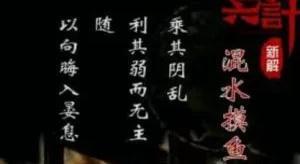 計
新解
混水摸鱼
乘其阴乱
利其弱而无主
随
以向晦入宴息